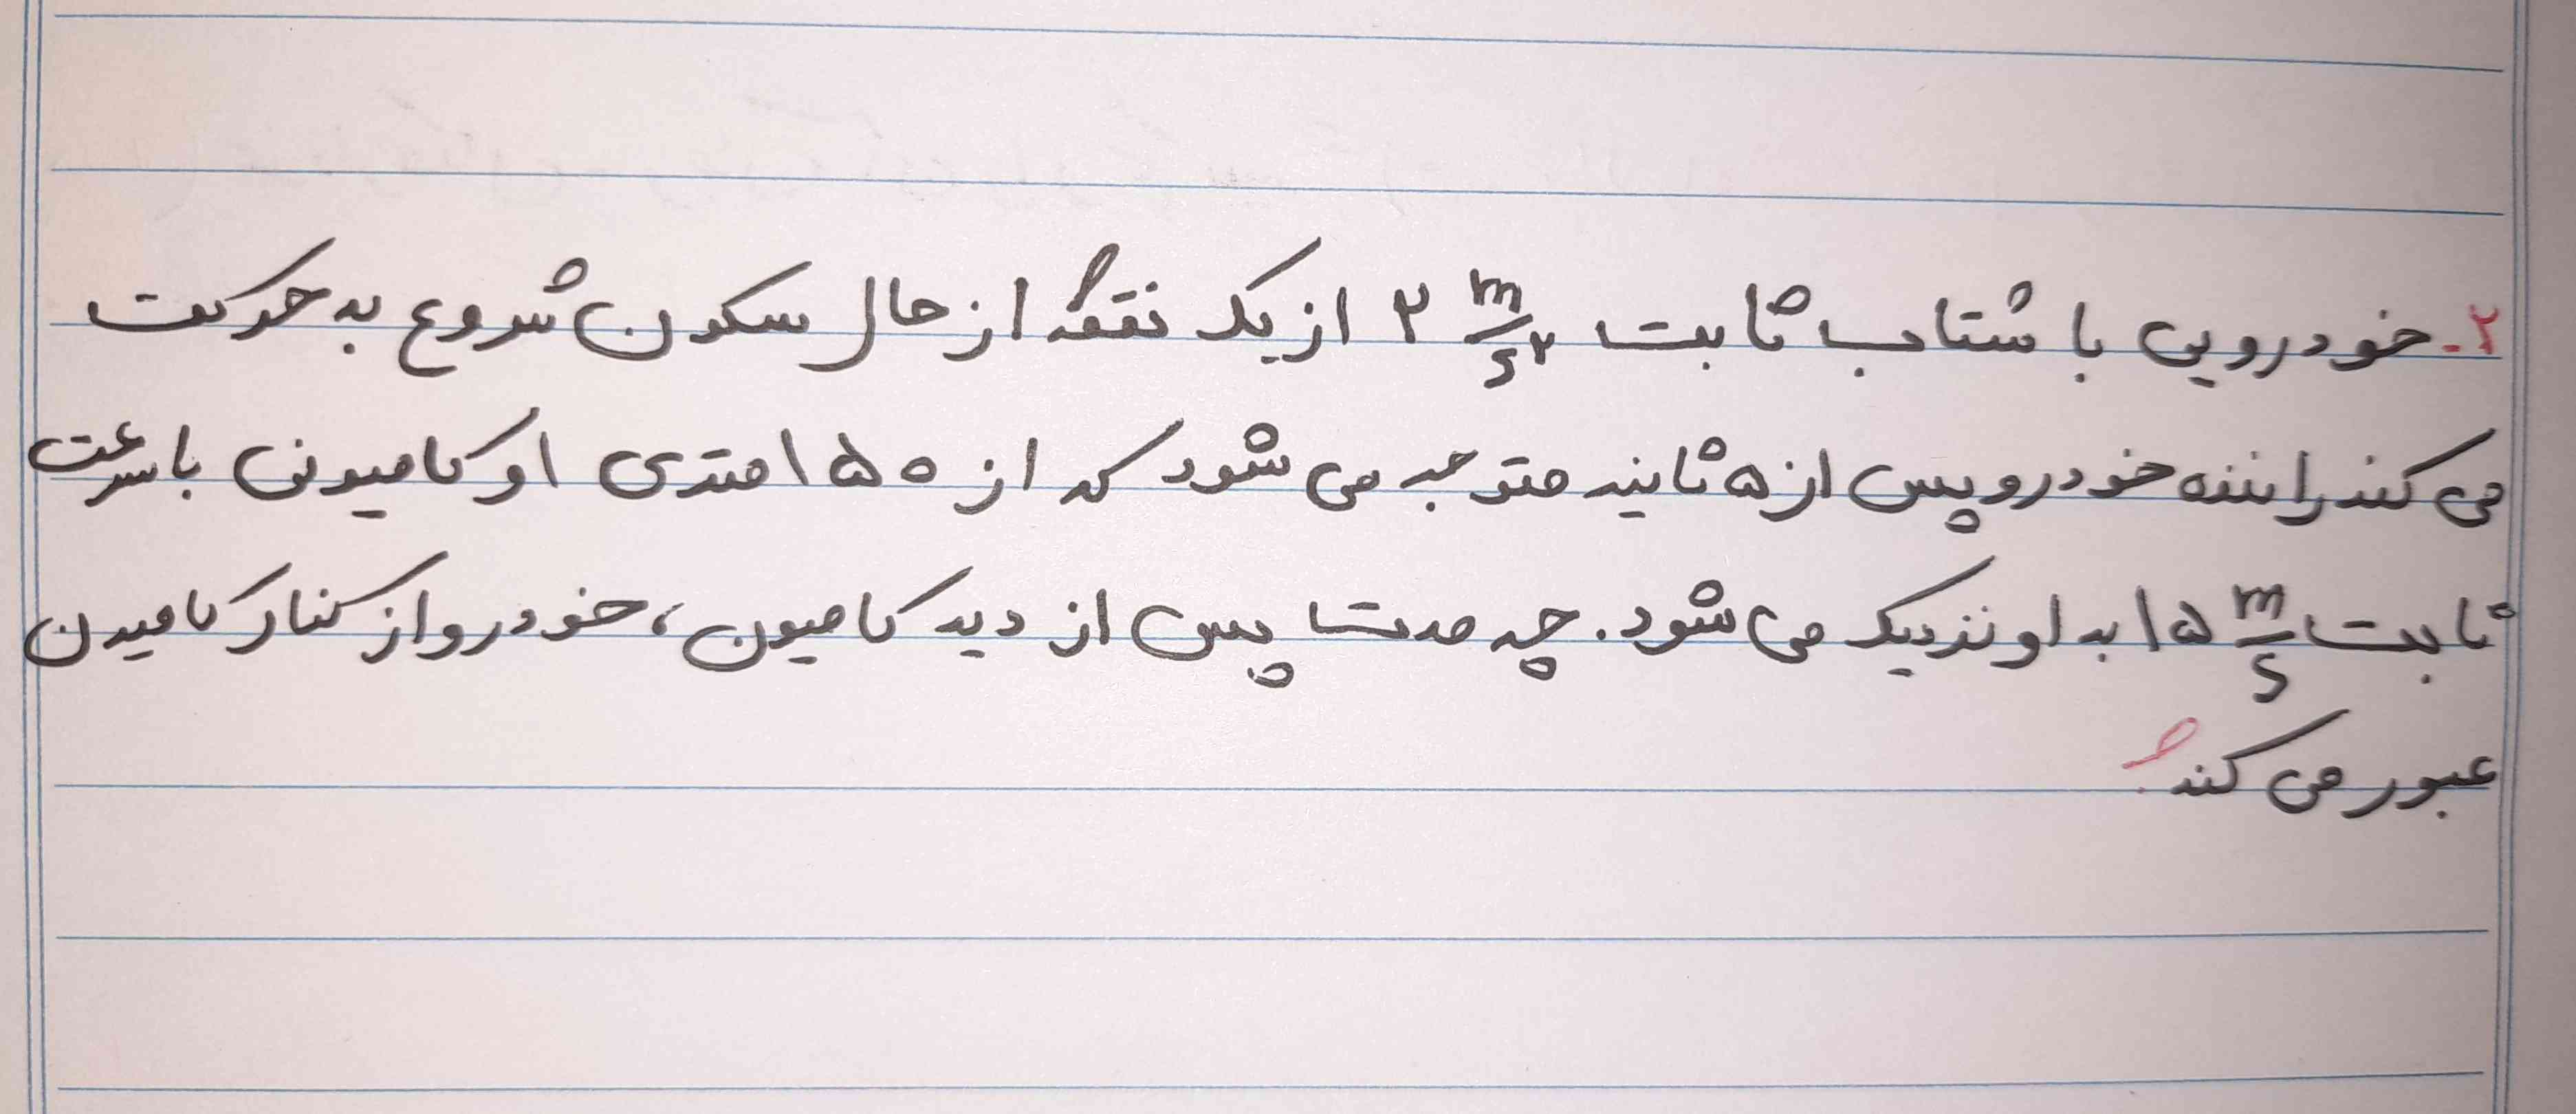 ۲. خودرویی با شتاب ثابت ۲ m/s۲ از یک نقطه از حال سکون شروع به حرکت
می کند راننده خودرو پس از ۵ ثانیه متوجه می شود که از ۱۵۰ متری او کامیونی با سرعت
ثابت ۱۵ m/s به او نزدیک می شود. چه مدت پس از دید کامیون، خودرو از کنار کامیون
عبور می کند؟